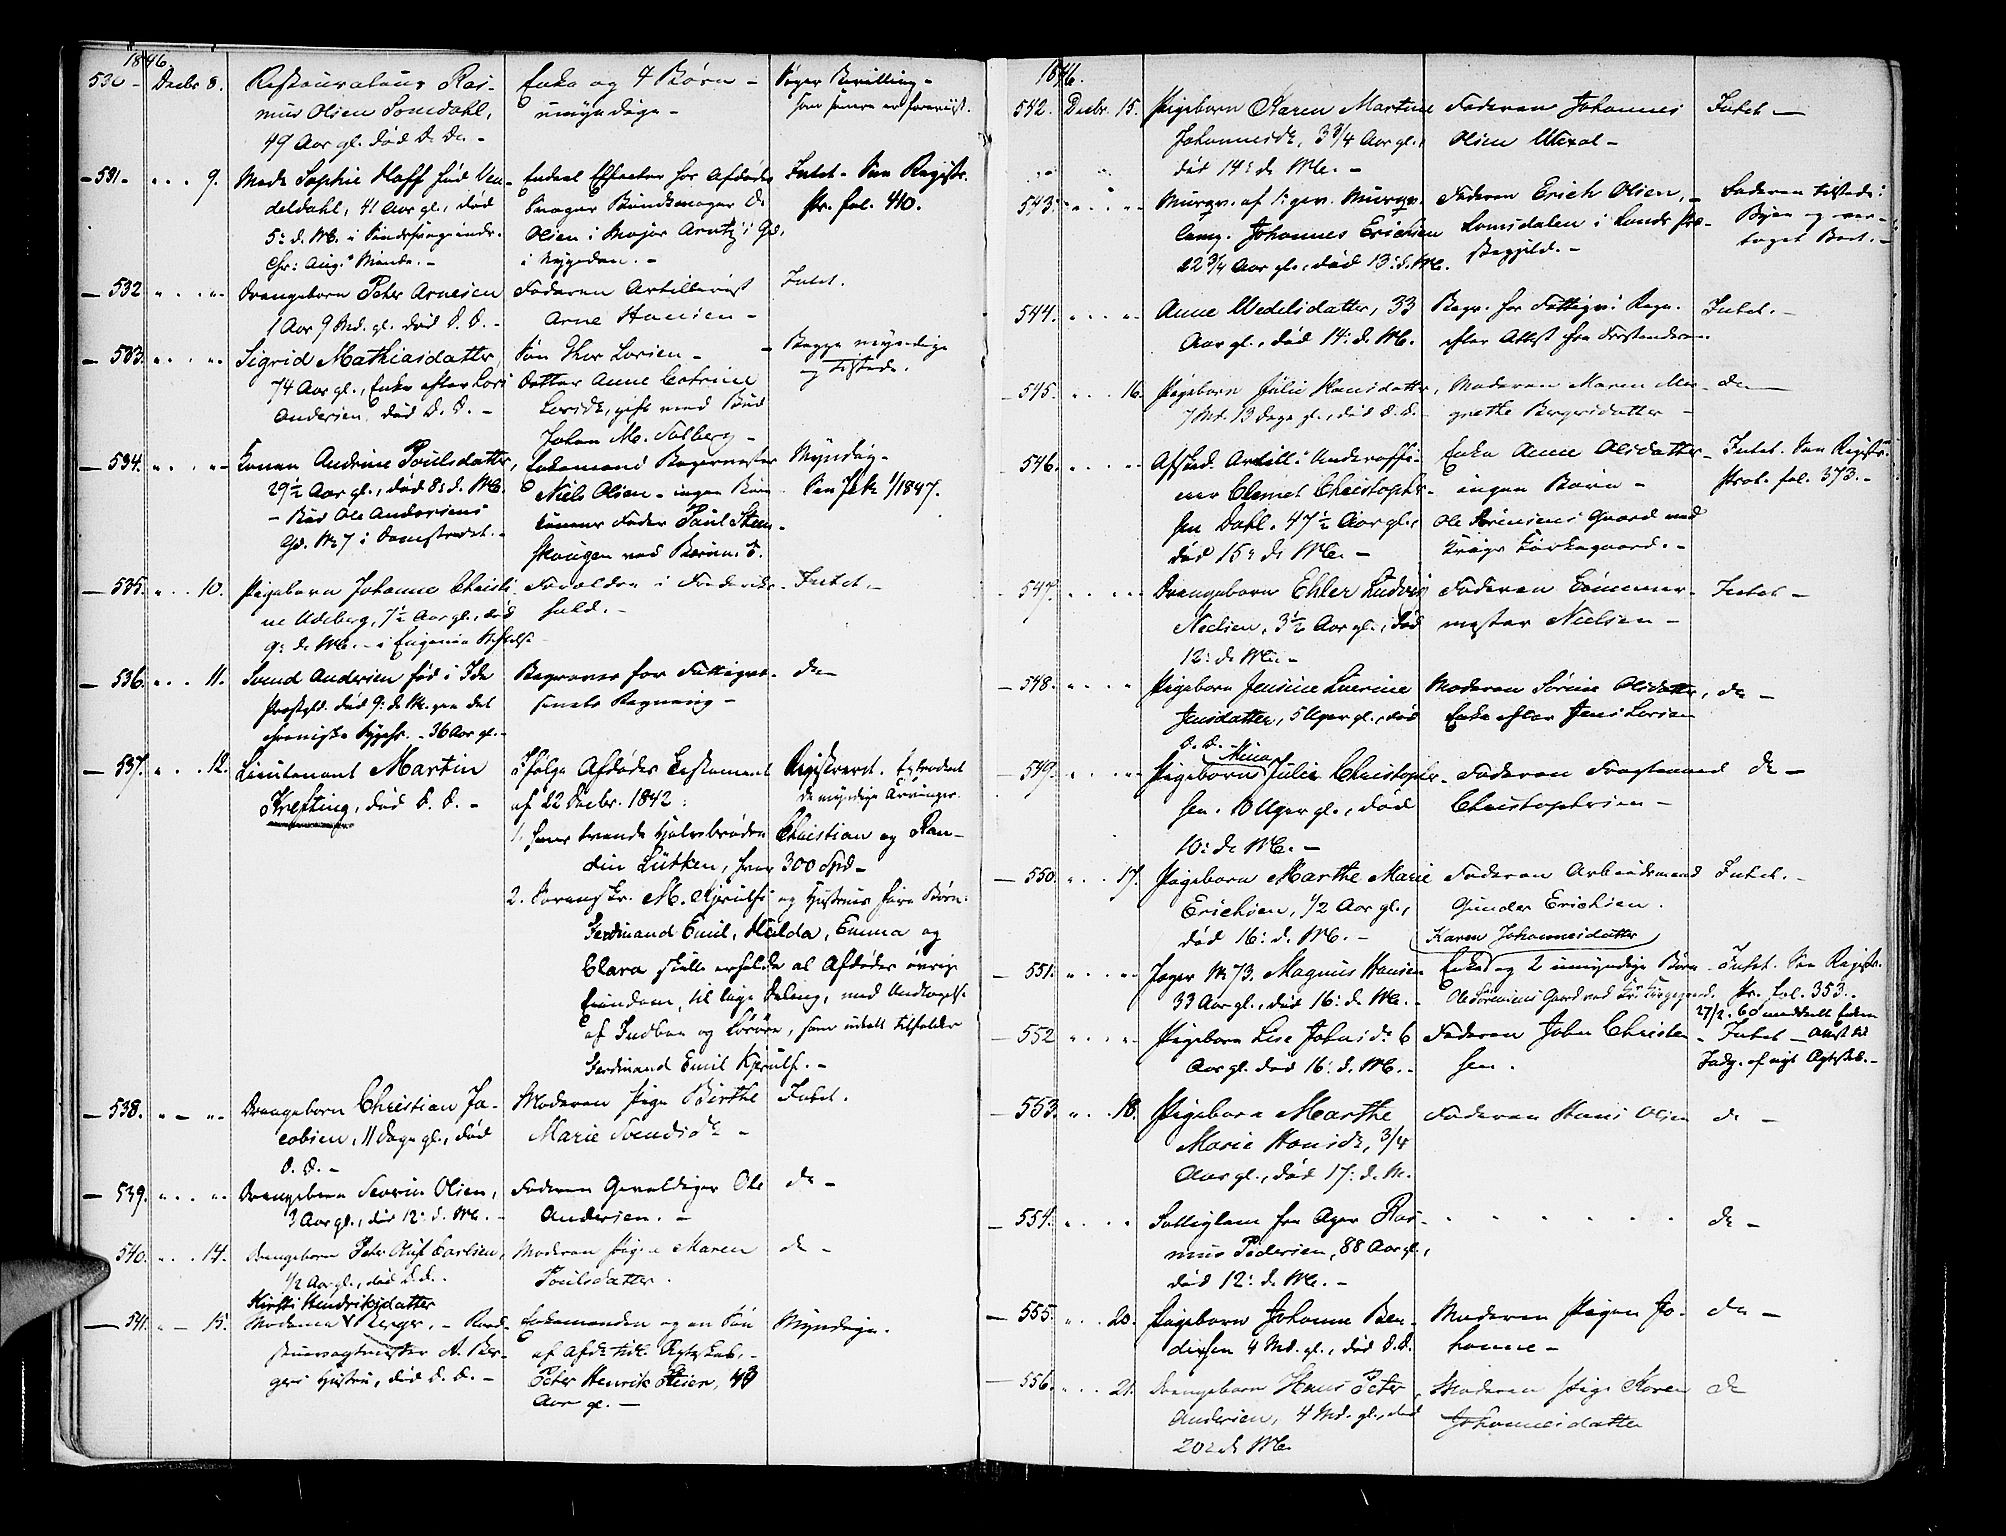 1846.
530 - Decbr 8. Restaurateur Ras-
mus Olsen Somdahl,
49 Aar gl. død d. D. -
Enke og 4 Børn -
umyndige -
Søger Bevilling -
- 531 - " . . 9. Mad. Sophie Hoff født Ven-
deldahl, 41 Aar gl., død
5: d. M. i
Chr: Aug. Minde. -
Endeel Effecter hos Afdødes
Svoger Bundtmager O.
Olsen i Major Arntz's Gd.
i -
Intet - See Registr.
Pr. fol. 410.
- 532 " . . " Drengebarn Peter Arnesen
1 Aar 9 Md. gl. død d. D. -
Faderen Artillerist
Arne Hansen -
Intet.
- 533. " . . " Sigrid Mathiasdatter,
74 Aar gl., Enke efter Lars
Andersen, død d. D. -
Søn Thor Larsen -
Datter Anne Cathrine
Larsdr, gift med Bud
Johan M. Solberg -
Begge myndige
og tilstede.
- 534. " . . " Konen Andrine Poulsdatter,
29½ Aar gl., død 8: d. M.
- Bud Ole Andersens
Gd. No 7 i Damstredet. -
Enkemand Bagermester
Niels Olsen - ingen Børn
hennes Fader Paul Steen-
skougen ved Bærum. -
Myndig -
See 1/1847.
- 535. " . . 10. Pigebarn Johanne Christi-
ne Udeberg, 7½ Aar gl., død
9: d. M. - i Eugenia Stiftelse
Forældre i Frederiks-
hald. -
Intet -
- 536. " . . 11. Svend Andersen fød i Ide
Prestgld. død 9: d. M. paa det
chroniske Sygehs. - 36 Aar gl. -
Begraves for Fattigvæ-
senets Regning -
do -
- 537. " . . 12. Lieutenant Martin
Krefting, død d. D. -
Ifølge Afdødes Testament
af 22 Decbr. 1842:
Registreret. Extradert
de myndige Arvinger.
1. hans tvende Halvbrødre Christian og Ran-
din Lütken, hver 300 Spd -
2. Sorenskr. M. Kjerulfs og Hustrues fire Børn:
Ferdinand Emil, Hulda, Emma og
Clara skulle erholde al Afdødes øvrige
Eiendom, til lige Deling, med Undtagelse
af Indboe og Løsøre, som udelt tilfalder
Ferdinand Emil Kjerulf. -
- 538. " - " Drengebarn Christian Ja-
cobsen, 11 Dage gl., død
d. D. -
Moderen Pige Birthe
Marie Svendsdr -
Intet.
- 539. " . . " Drengebarn Severin Olsen,
3 Aar gl., død 12: d. M. -
Faderen Gevaldiger Ole
Andersen. -
do -
540. " . . 14. Drengebarn Peter Oluf Carlsen,
1/2 Aar gl., død d. D. -
Moderen Pigen Maren
Poulsdatter.
do -
Kirsti Hendriksdatter
- 541. " - 15. Madame Berger, -
A. Ber-
gers Hustru, død d. D. -
Enkemanden og en Søn
af Afdødes tidl. Ægteskab, -
Peter Henrik Steien, 43
Aar gl. -
Myndige.
1846.
542. Decbr. 15. Pigebarn Karen Martine
Johannesdr, 3 3/4 Aar gl.,
død 14: d. M. -
Faderen Johannes
Olsen -
Intet -
543. " . " Murersv. af
Comp. Johannes Erichsen
22 3/4 Aar gl., død 13: d. M.
Faderen Erich Olsen, -
Lomsdalen i Lands Præ-
stegjeld. -
Faderen tilstede i
Byen og var
taget Bort. -
544. " . . " Anne Nedelsdatter, 33
Aar gl., død 14: d. M.
Begr. for Fattigv: Regn.
efter Attest fra Forstanderen.
Intet. -
- 545. " . . 16. Pigebarn Julie Hansdatter,
7 Md. 13 Dage gl., død d. D. -
Moderen Maren Mar-
grethe Bergersdatter -
do -
- 546. " . . " Afskd. Artill: Underoffi-
ceer Clemet Christopher-
sen Dahl. 47½ Aar gl.,
død 15: d. M. -
Enke Anne Olsdatter -
ingen Børn -
Ole Sørensens Gaard ved
Krigs Kirkegaard. -
Intet. See Registr.
Prot. fol. 373. -
- 547. " . . " Drengebarn Ehler Ludvig
Nielsen, 3½ Aar gl., død
12: d. M. -
Faderen Tømmer-
mester Nielsen -
Intet -
- 548. " . " Pigebarn Jensine Severine
Jensdatter, 5 Uger gl., død
d. D. -
Moderen Sørine Olsdatter,
Enke efter Jens Larsen
do -
- 549. " . . " Pigebarn Mina Julie Christopher-
sen. 10 Uger gl., død
10: d. M. -
Faderen Fragtmand
Christophersen -
do -
- 550. " . . 17. Pigebarn Marthe Marie
Erichsen, 1/2 Aar gl.,
død 16: d. M. -
Faderen Arbeidsmand
Gunder Erichsen.
Intet. -
Karen Johannesdatter
- 551. " . . " Jæger No 73. Magnus Hansen
33 Aar gl., død 16: d. M. -
Enke og 2 umyndige Børn -
Ole Sørensens Gaard ved Kr: Kirkegaard.
Intet. See Registr.
Pr. fol. 353.
27/2. 60 meddeelt Enken
Attest til
Indg. af nyt Ægtesk. -
- 552 " . . " Pigebarn Lise Johnsdr 6
Aar gl. død 16: d. M. -
Faderen John Christen-
sen.
- Intet -
- 553. " . . 18. Pigebarn Marthe
Marie Hansdr, 3/4
Aar gl., død 17: d. M.
Faderen Hans Olsen
do -
- 554. " . . " Fattiglem fra Ager Ras-
mus Pedersen, 88 Aar gl.,
død 12: d. M. -
do -
- 555. " . . 20. Pigebarn Johanne Ben-
dixsen 4 Md. gl., død d. D.
Moderen Pigen Jo-
hanne -
do -
- 556. " . . 21. Drengebarn Hans Peter
Andersen, 4 Md. gl., død
20: d. M.
Moderen Pige Karen
Johannesdatter
do